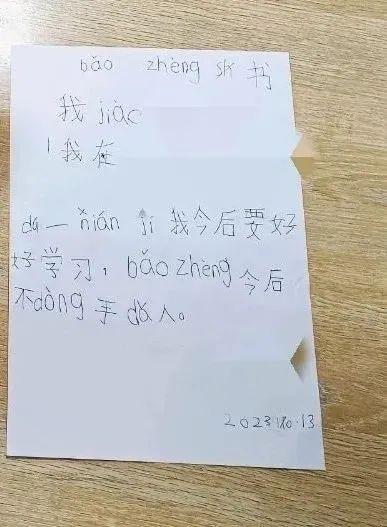 bǎo zhèng sh 书
我 jiào
我在
dú 一 nián jí 我今后要好
好学习，bǎo zhèng 今后
不 dòng 手 dǎ 人。
2023.10.13